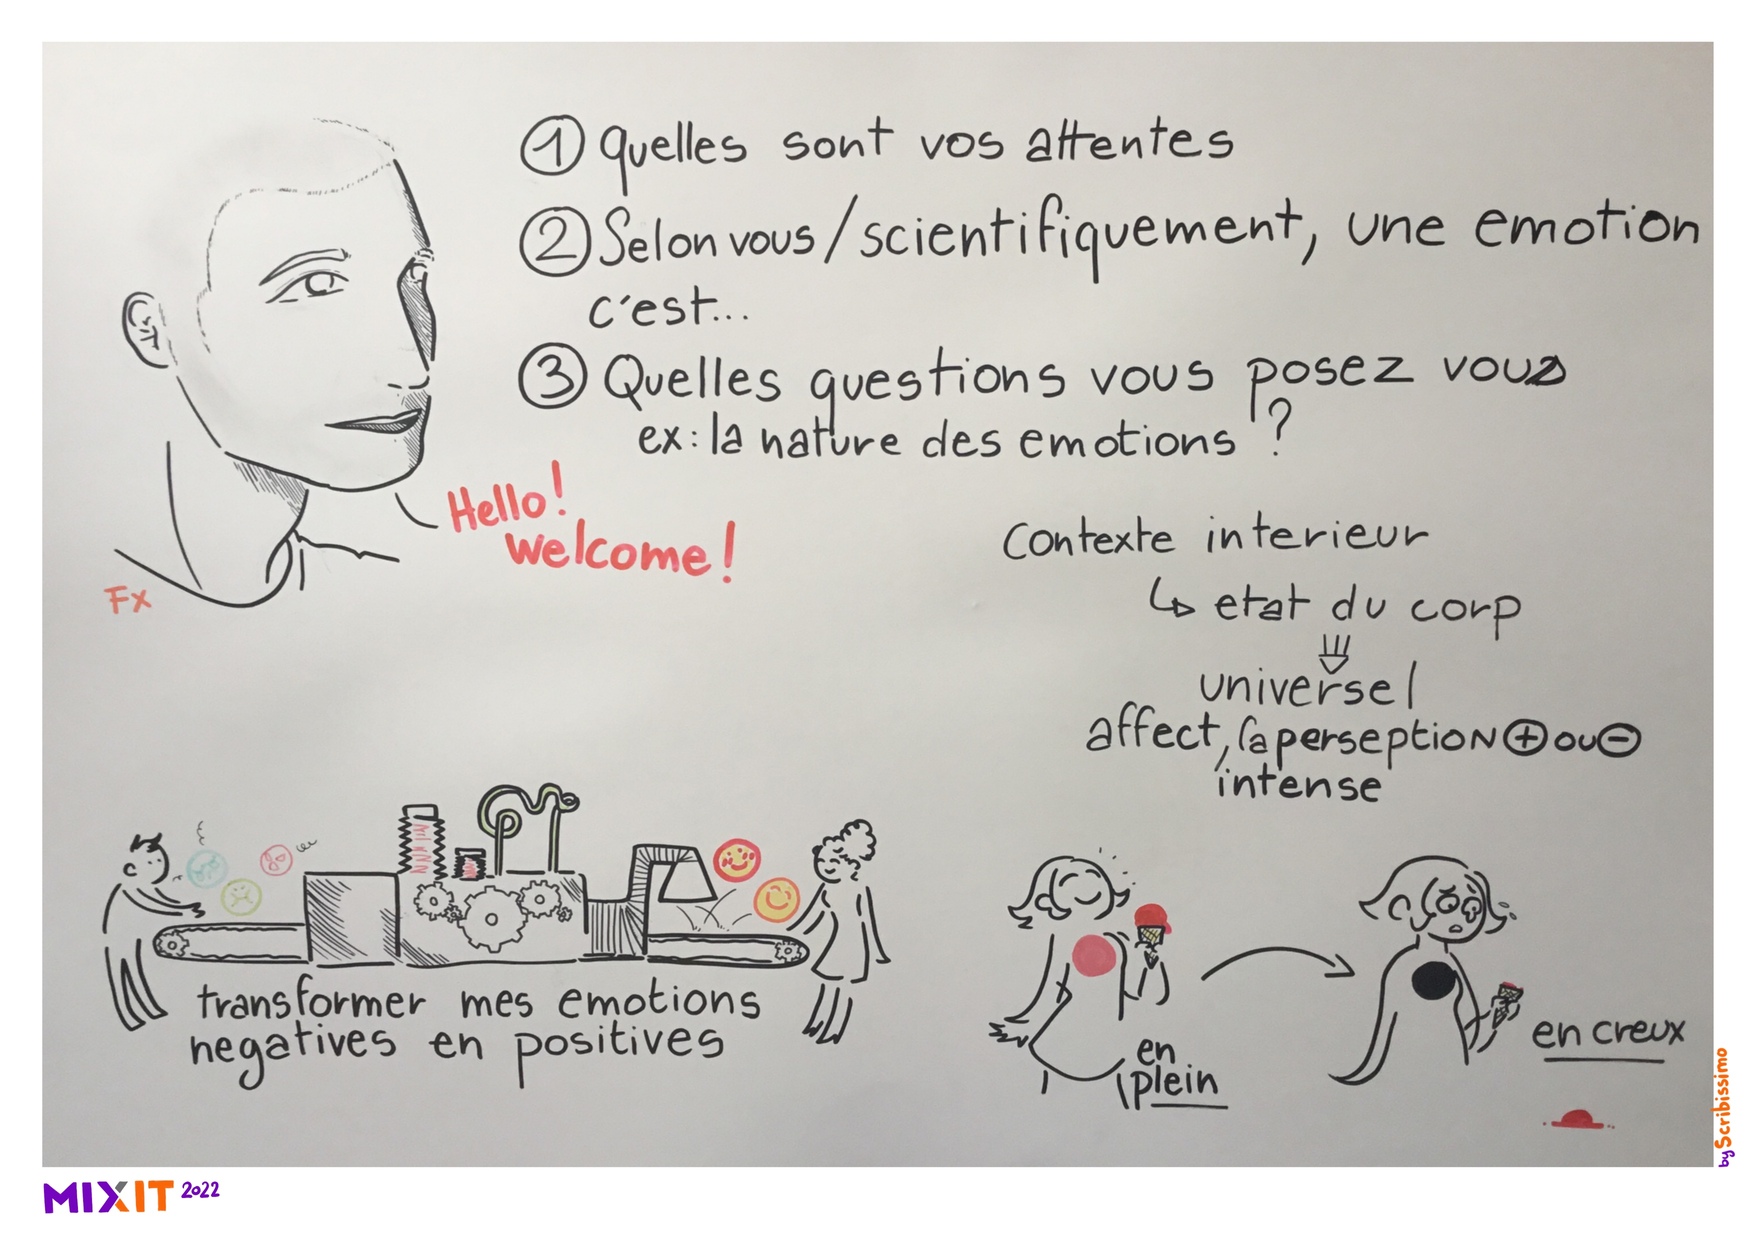 ① quelles sont vos attentes
② Selon vous/scientifiquement, une emotion
c'est...
③ Quelles questions vous posez vous
ex: la nature des emotions ?
Hello!
welcome!
Fx
Contexte interieur
↳ etat du corp
⇓
universel
affect, la perseption ⊕ ou ⊖
intense
transformer mes emotions
negatives en positives
en
plein
en creux
by Scribissimo
MIXIT 2022